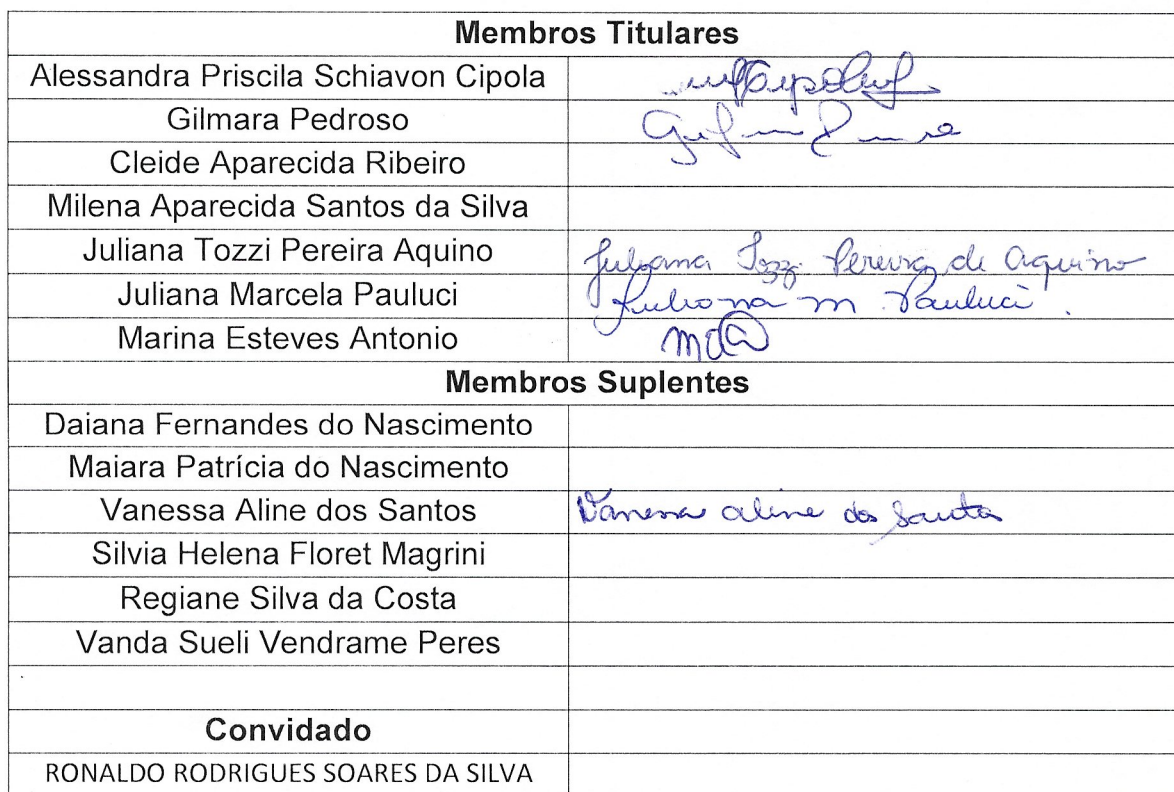 Membros Titulares
Alessandra Priscila Schiavon Cipola
Gilmara Pedroso
Cleide Aparecida Ribeiro
Milena Aparecida Santos da Silva
Juliana Tozzi Pereira Aquino Juliana Tozzi Pereira de Aquino
Juliana Marcela Pauluci Juliana M Pauluci.
Marina Esteves Antonio
Membros Suplentes
Daiana Fernandes do Nascimento
Maiara Patrícia do Nascimento
Vanessa Aline dos Santos Vanessa Aline dos Santos
Silvia Helena Floret Magrini
Regiane Silva da Costa
Vanda Sueli Vendrame Peres
Convidado
RONALDO RODRIGUES SOARES DA SILVA